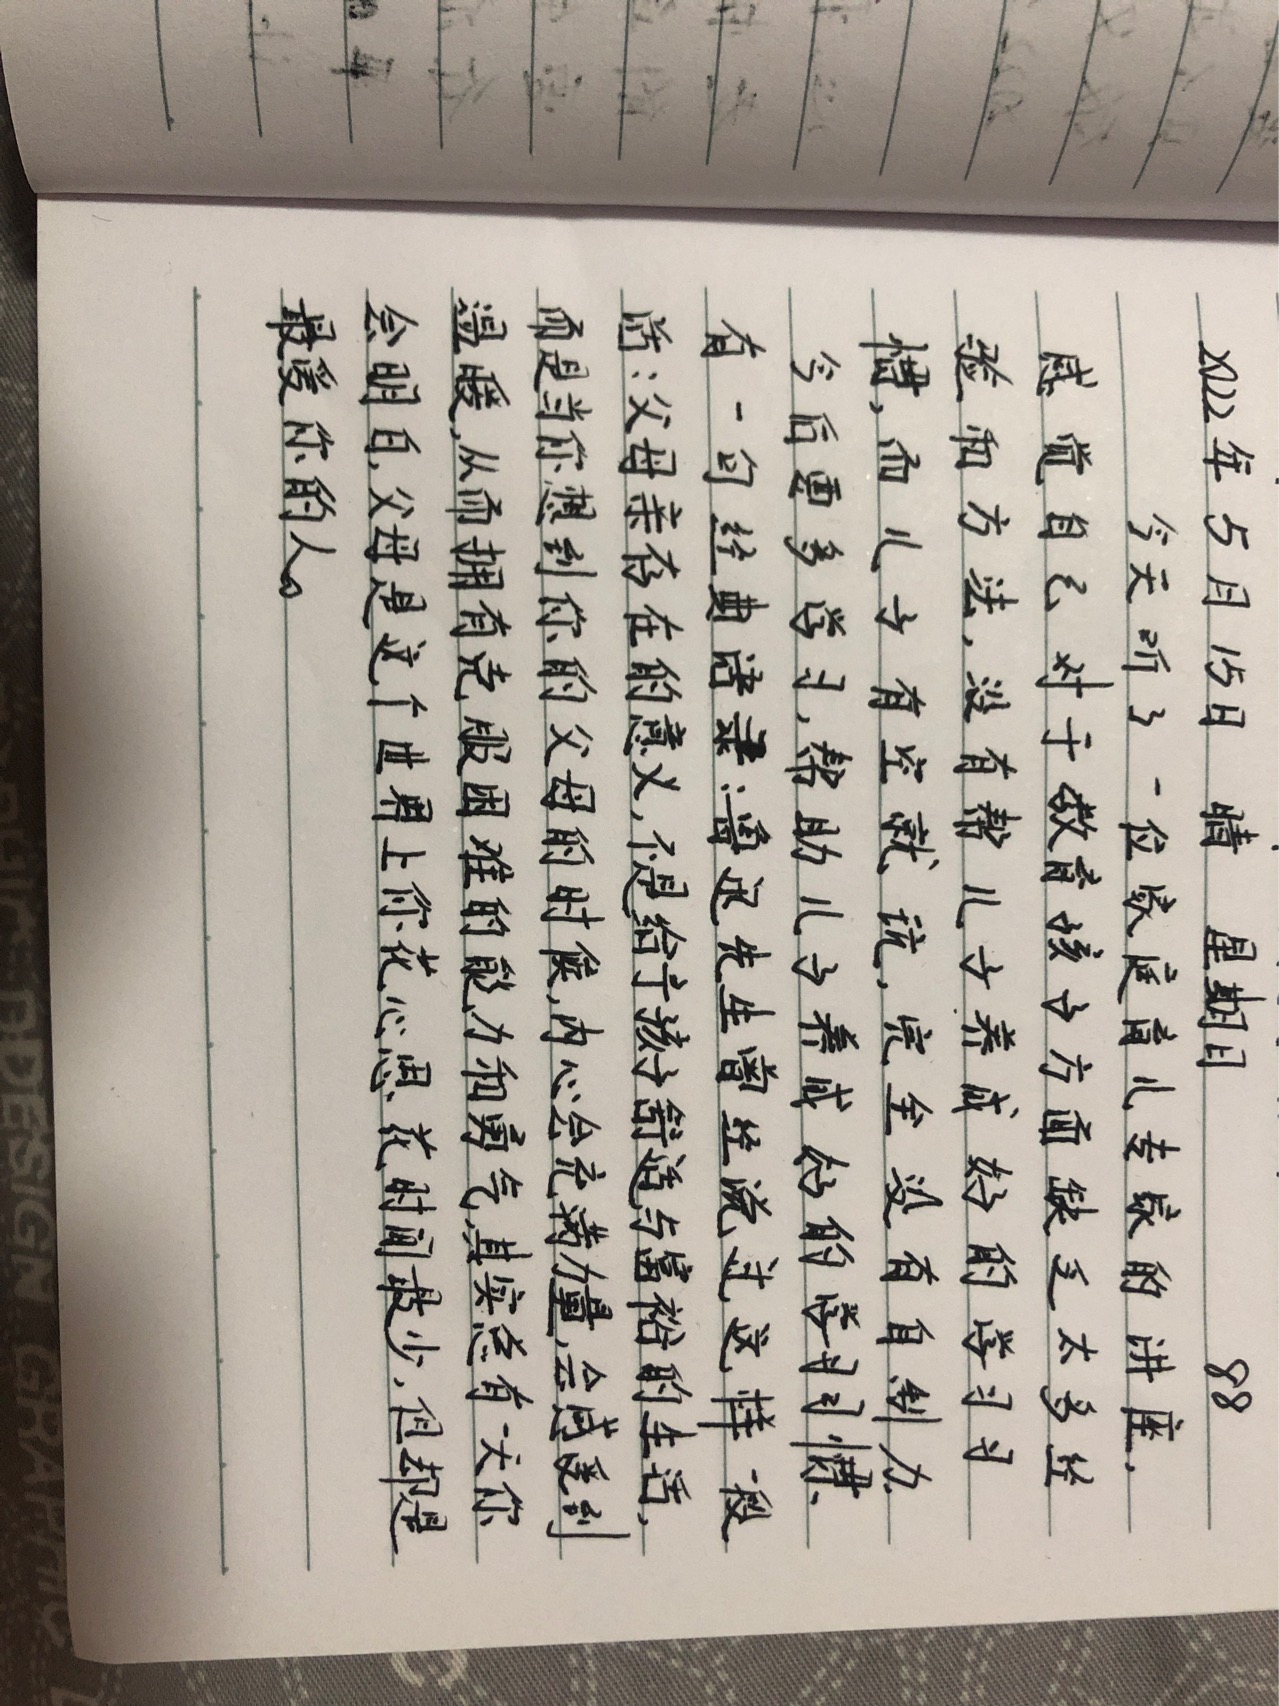 2022年5月15日 晴 星期日 88
今天听了一位家庭育儿专家的讲座,
感觉自己对于教育孩子方面缺乏太多经
验和方法,没有帮儿子养成好的学习习
惯,而儿子有空就玩,完全没有自制力
今后要多学习,帮助儿子养成好的学习习惯、
有一句经典语录:鲁迅先生曾经说过这样一段
话:父母亲存在的意义,不是给予孩子舒适与富裕的生活,
而是当你想到你的父母的时候,内心会充满力量,会感受到
温暖,从而拥有克服困难的能力和勇气,其实总有一天你
会明白,父母是这个世界上你花心思、花时间最少,但却是
最爱你的人。
DESIGN GRAPHIC